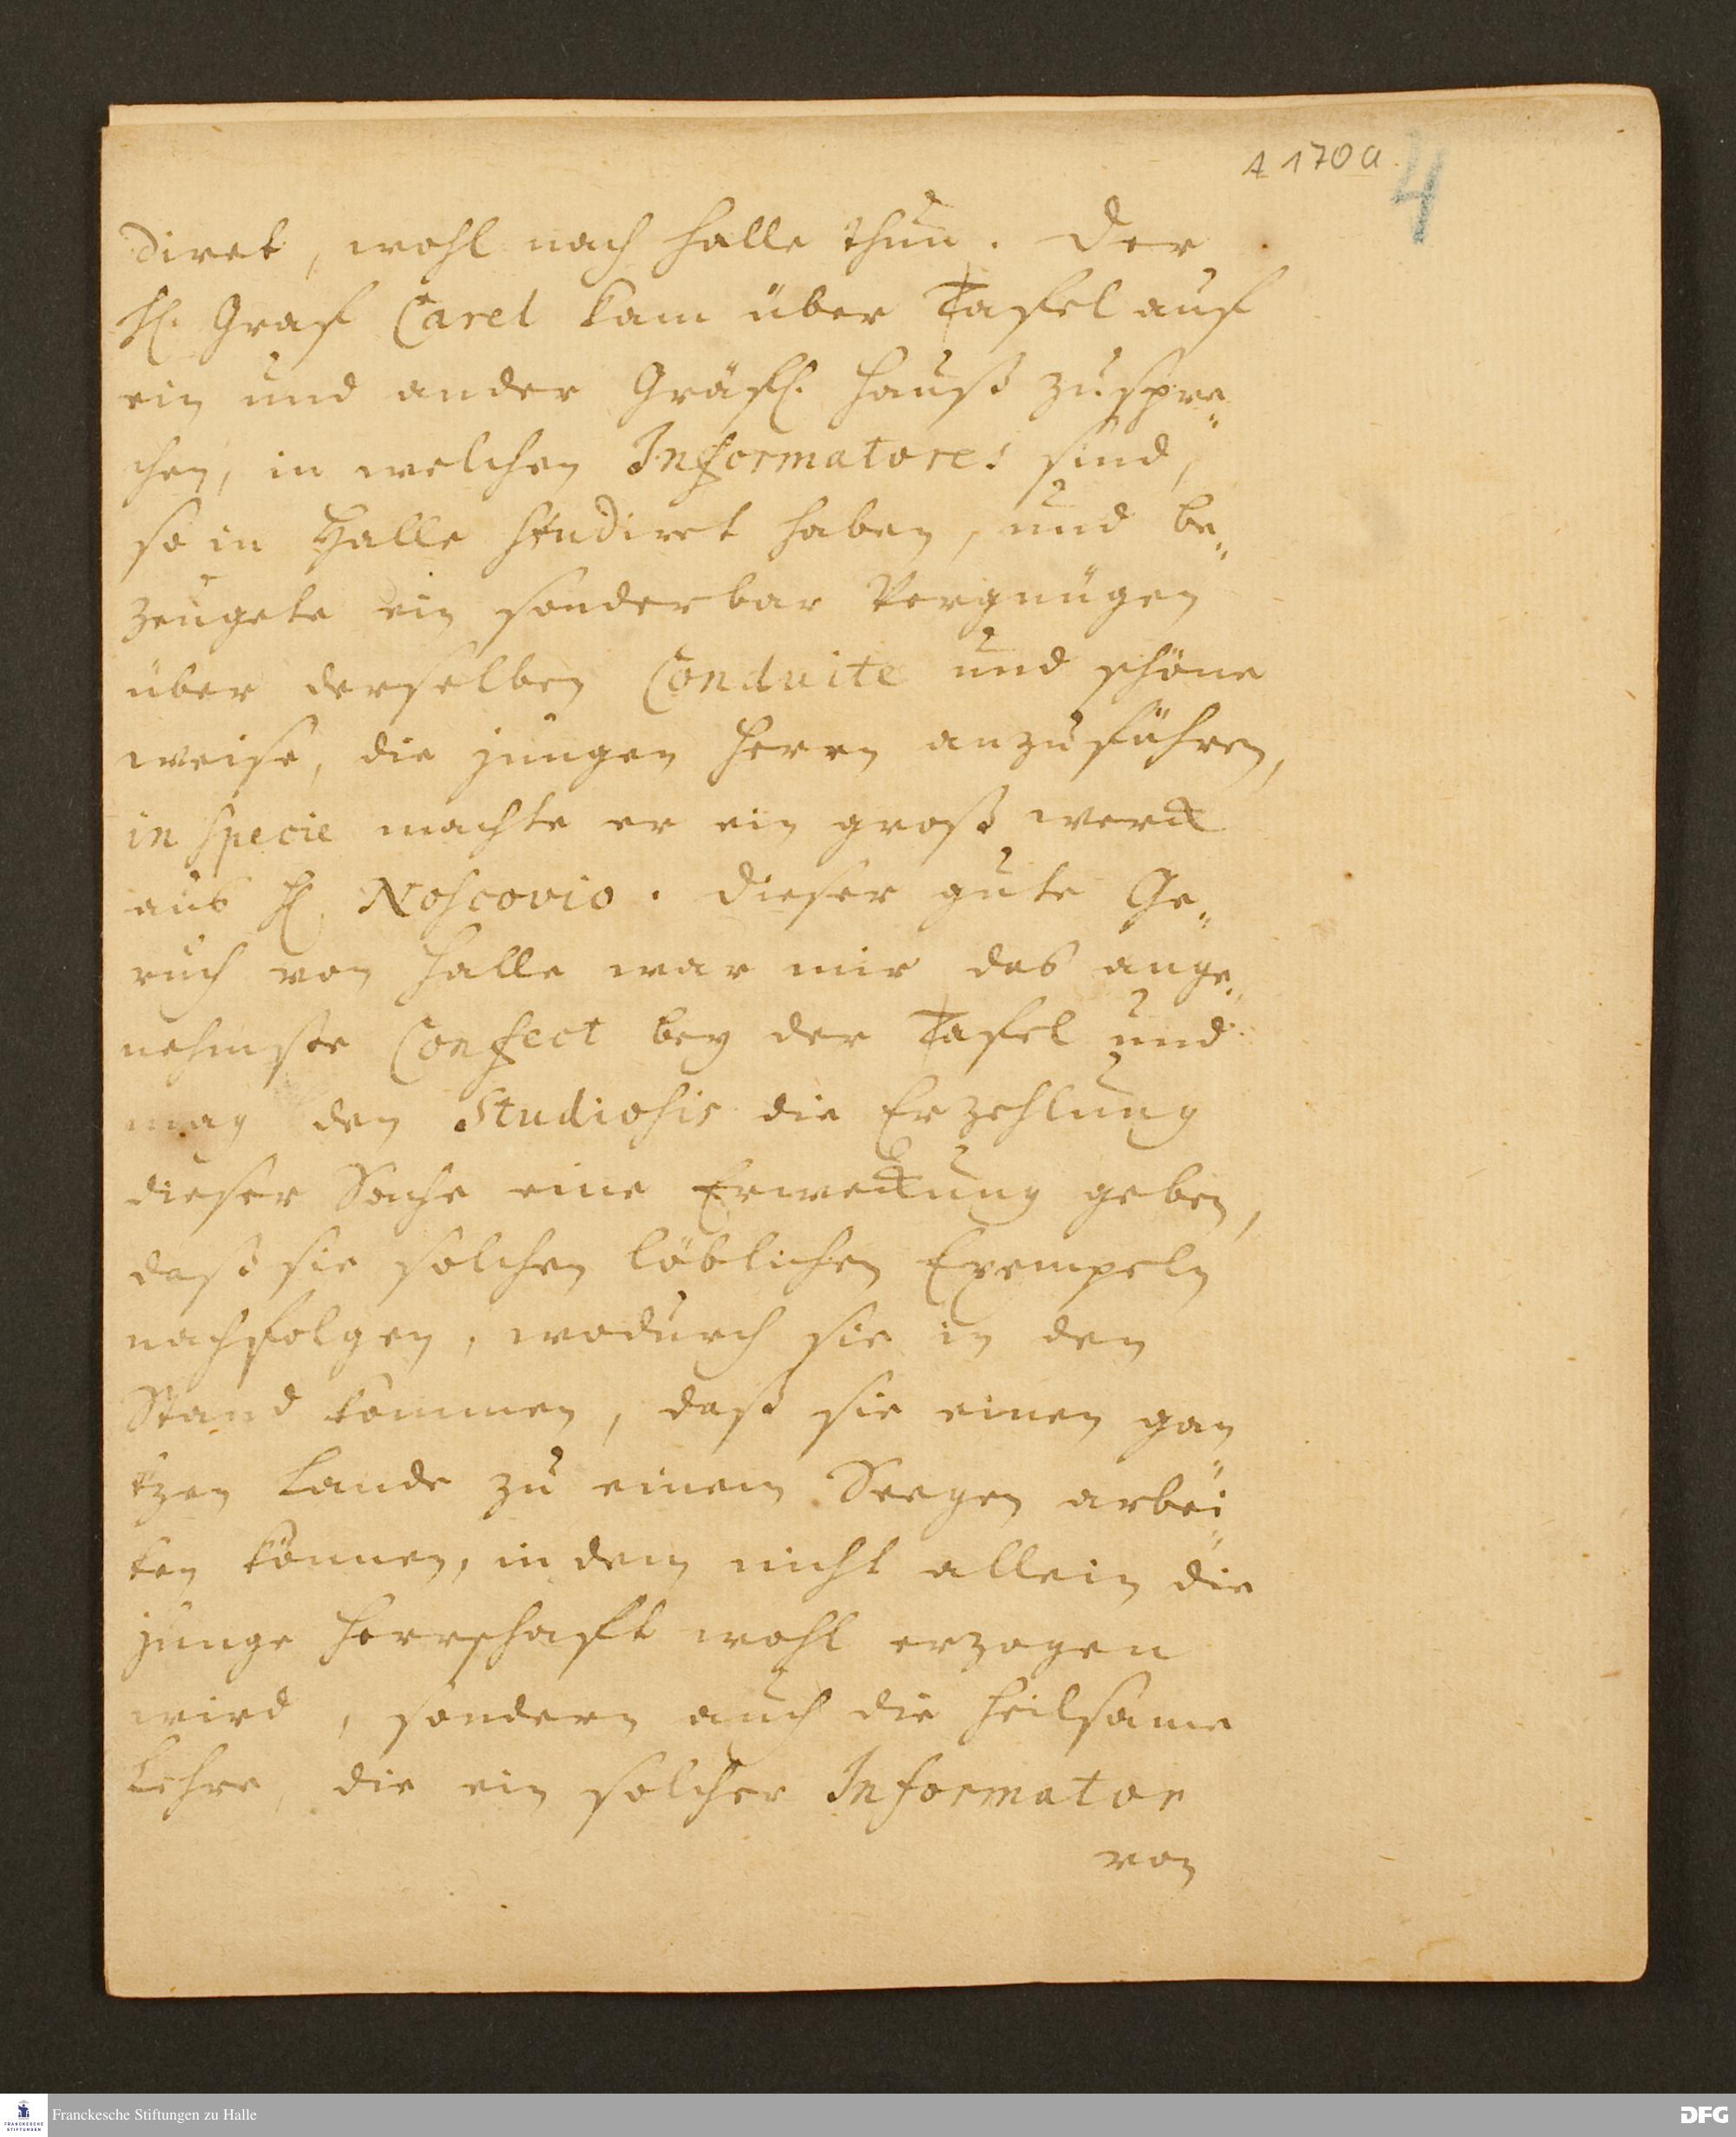 A 170a
4
diret, wohl nach Halle thun. Der
H. Graf Carel kam über Tafel auf
ein und ander Gräfl. Hauß zuspre„
chen, in welchen Informatores sind,
so in Halle studiret haben, und be„
zeugete ein sonderbar Vergnügen
über derselben Conduite und schöne
weise, die jungen Herrn anzuführen,
in specie machte er ein groß werck
aus H. Noscovio. Dieser gute Ge„
ruch von Halle war mir das ange„
nehmste Confect bey der Tafel und
mag den Studiosis die Erzehlung
dieser Sache eine Erweckung geben,
daß sie solchen löblichen Exempeln
nachfolgen, wodurch sie in den
Stand kommen, daß sie einen gan„
tzen Lande zu einem Seegen arbei„
ten können, in dem nicht allein die
junge Herrschafft wohl erzogen
wird, sondern auch die heilsame
Lehre, die ein solcher Informator
von
Franckesche Stiftungen zu Halle
DFG
FRANCKESCHE
STIFTUNGEN